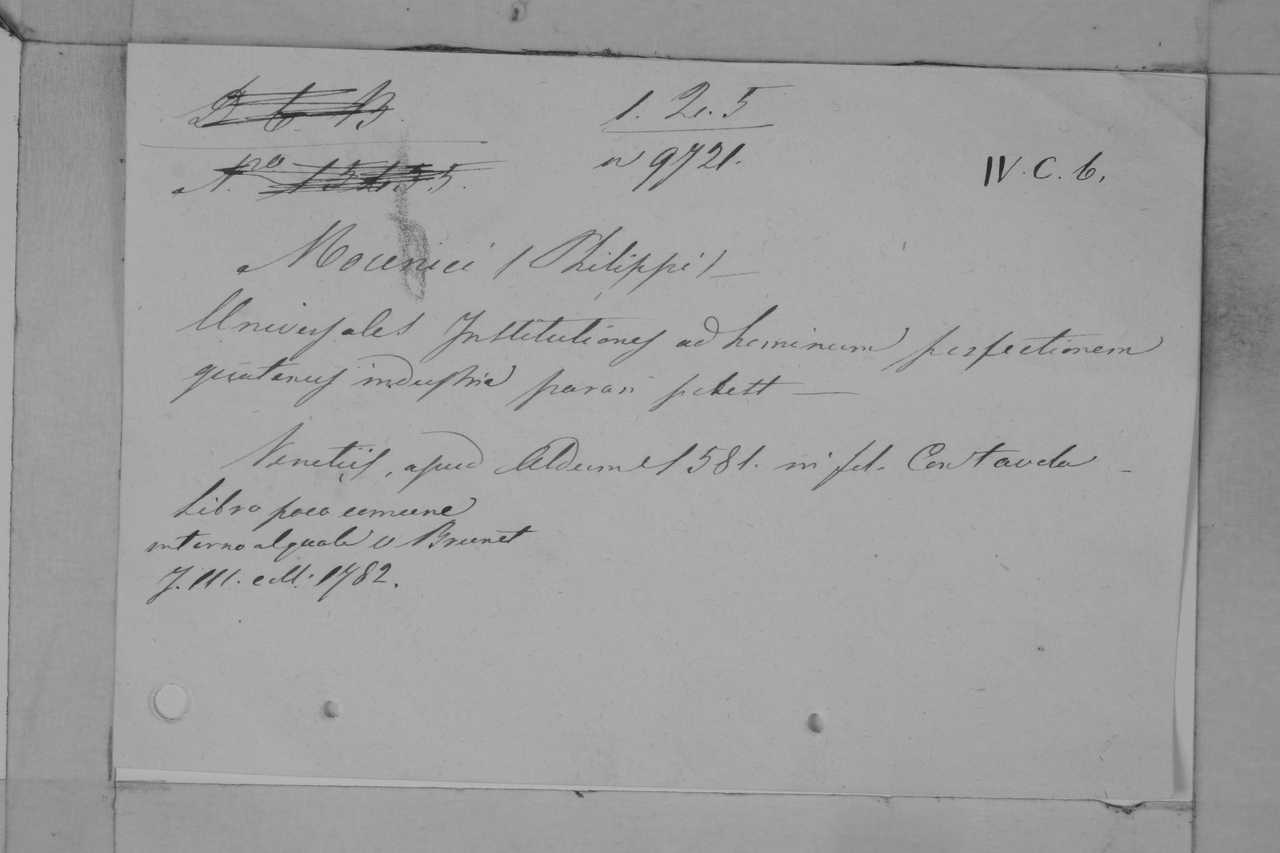 1. 2. 5
n 9721.
IV. C. 6.
Mocenici (Philippi) —
Universales Institutiones ad hominum perfectionem
quatenus industria parari potest —
Venetiis, apud Aldum 1581. in fol. Con tavola
Libro poco comune
intorno al quale v Brunet
T. III. c M. 1782.